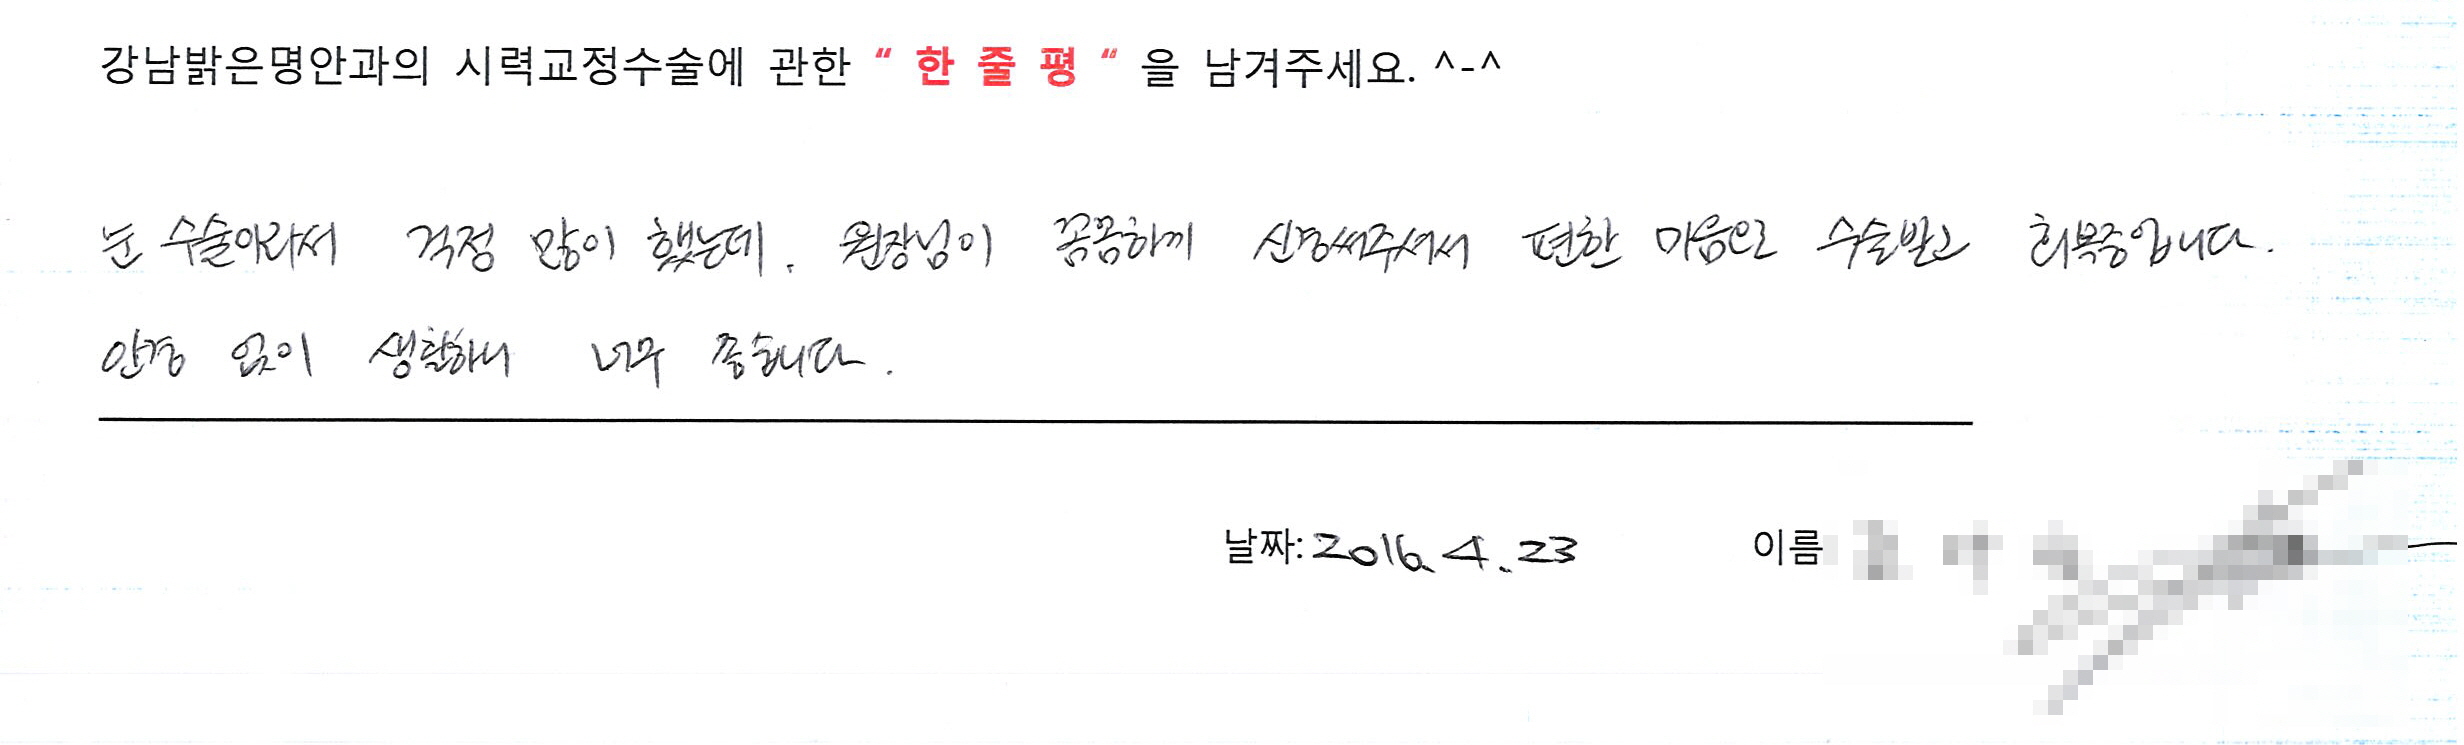 강남밝은명안과의 시력교정수술에 관한 “ 한 줄 평 “ 을 남겨주세요. ^-^
눈 수술이라서 걱정 많이 했는데. 원장님이 꼼꼼하게 신경써주셔서 편한 마음으로 수술받고 회복중입니다.
안경 없이 생활하니 너무 좋습니다.
날짜: 2016. 4. 23 이름